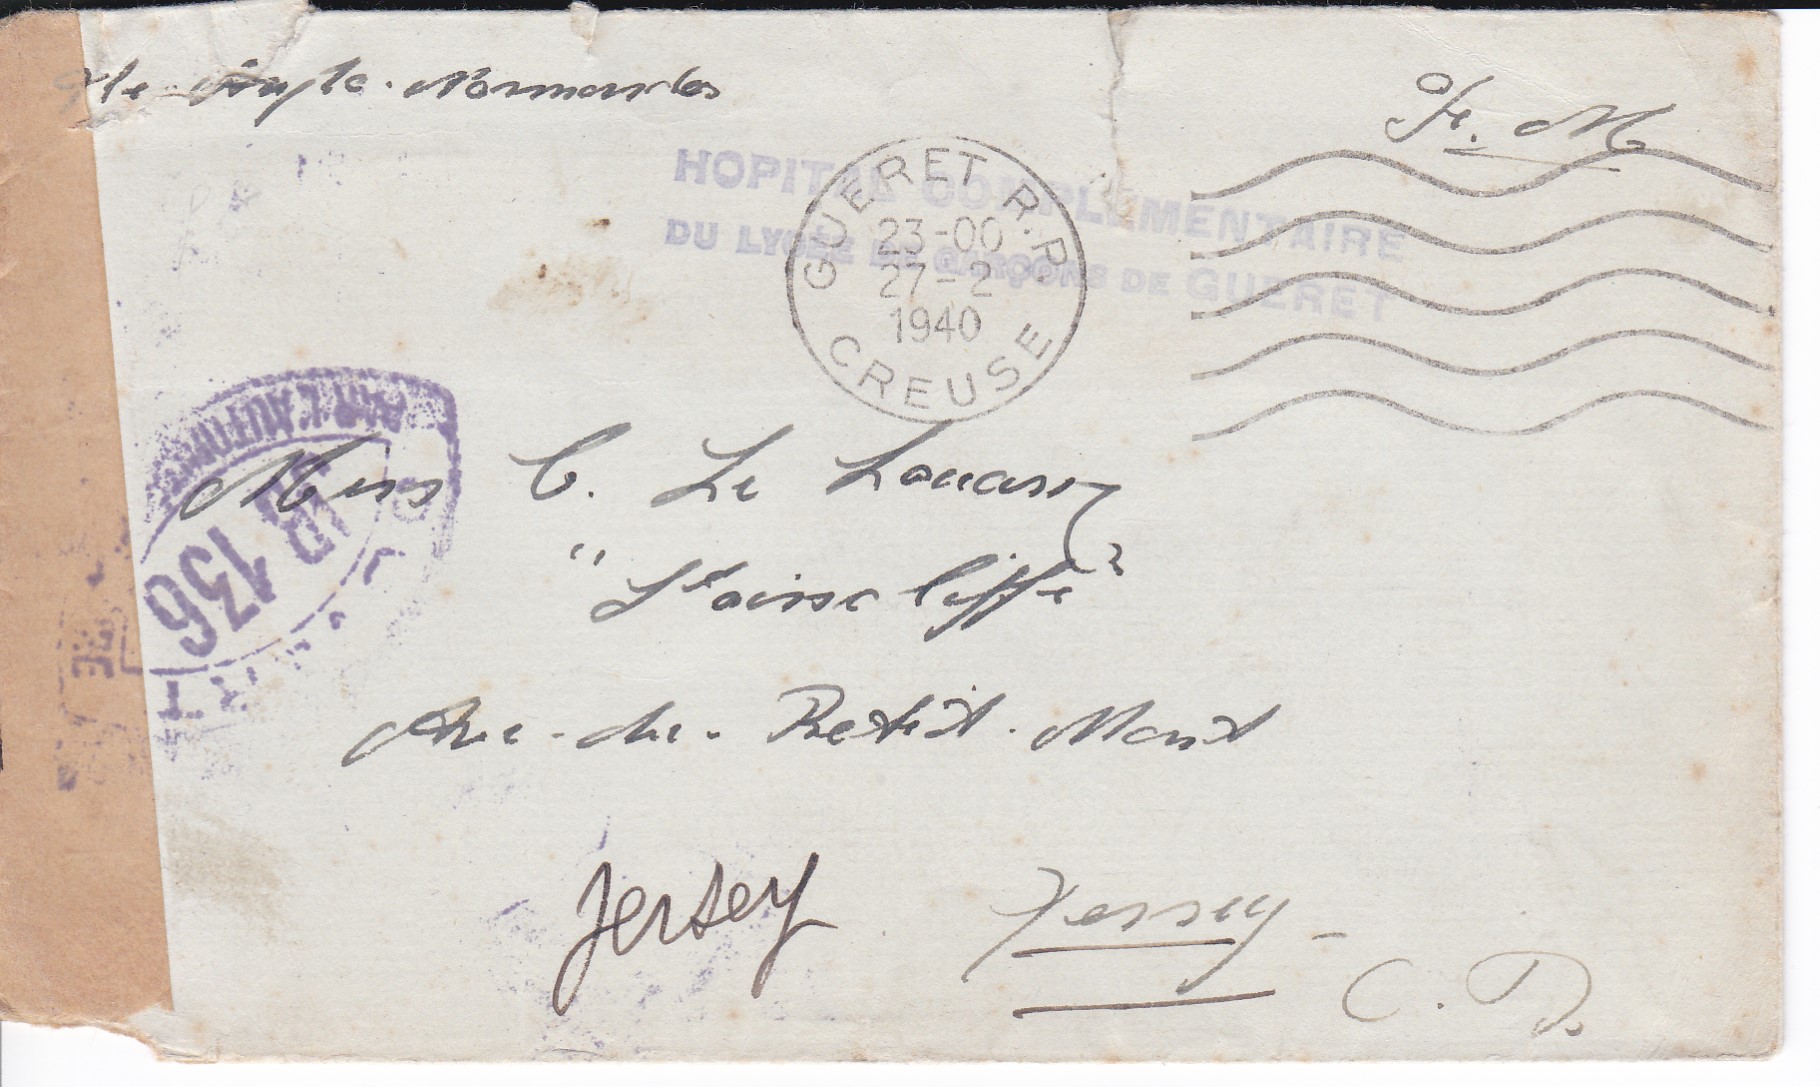 Ile Anglo-Normandes
F. M
HOPITAL COMPLEMENTAIRE
DU LYCÉE DE GARÇONS DE GUERET
GUERET R.P.
23-00
27-2
1940
CREUSE
PAR L'AUTORITÉ
136
Miss C. Le Louarn
Ave-du-Petit-Mont
Jersey
Jersey -
C. D.